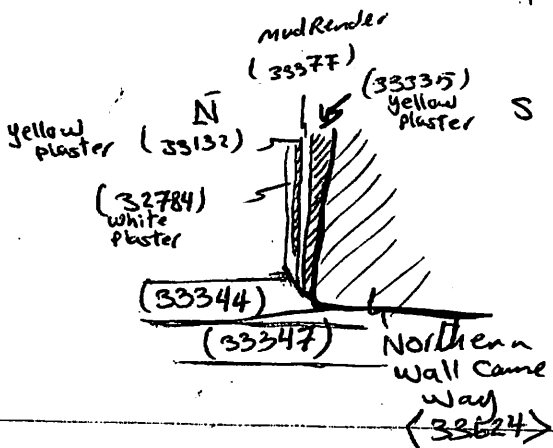 mud Render
(33377)
N
(33335)
yellow
plaster
S
yellow
plaster
(33132)
(32784)
white
plaster
(33344)
(33347)
Northern
Wall Came
Way